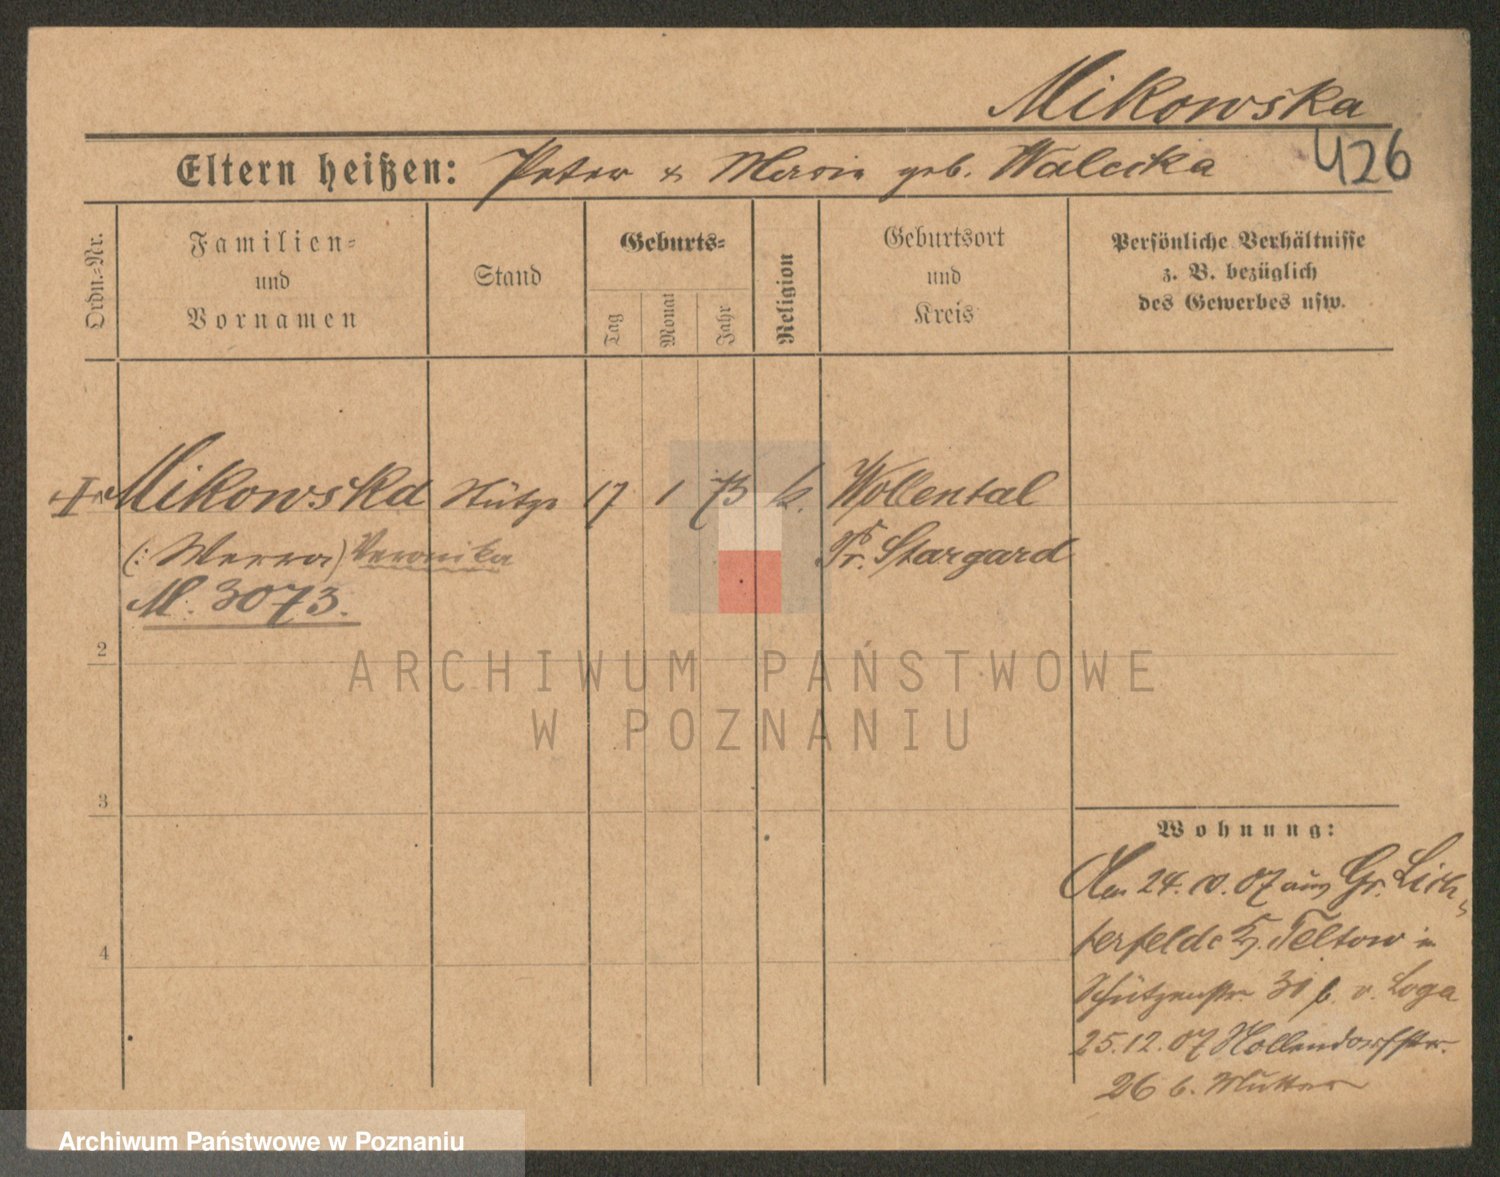 Mikowska
426
Eltern heißen: Peter & Maria geb. Walecka
Ordn.-Nr.
Familien- und Vornamen
Stand
Geburts-
Tag
Monat
Jahr
Religion
Geburtsort und Kreis
Persönliche Verhältnisse z. B. bezüglich des Gewerbes usw.
Mikowska Stütze 17 1 73 k. Wollental
(: Werra) Veronika Pr. Stargard
M. 3073.
2
3
4
Wohnung:
Am 24.10.07 aus Gr. Lich-
terfelde Kr. Teltow in
Schützenstr. 30 b. v. Loga
25.12.07 Hollendorfstr.
26 b. Mutter
ARCHIWUM PAŃSTWOWE
W POZNANIU
Archiwum Państwowe w Poznaniu